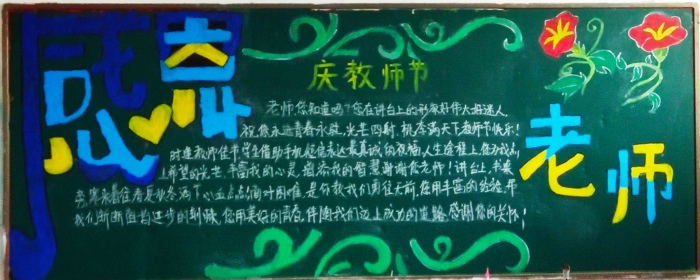 感恩
庆教师节
老师
老师,您知道吗?您在讲台上的形象好伟大好迷人
祝您永远青春永驻,光芒四射,桃李满天下教师节快乐!
时逢教师佳节学生借助手机短信表达最真诚的祝福,人生旅程上,您为我
上希望的光芒,丰富我的心灵,增添我的智慧谢谢您老师!讲台上,书桌
旁,寒来暑往春夏秋冬洒下心血点点面对困难,是你教我们勇往无前,您用丰富的经验,带
我们渐渐踏着进步的
您用美好的青春,伴随我们迈上成功的道路,感谢您的关怀!